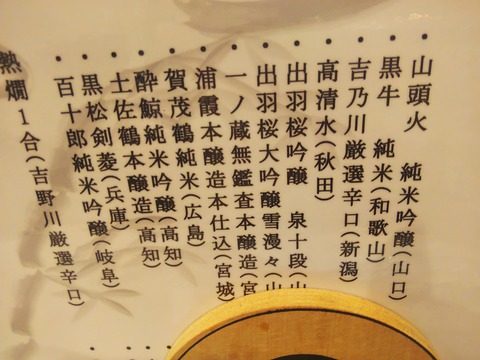 ・山頭火 純米吟醸(山口)
・黒牛 純米(和歌山)
・吉乃川厳選辛口(新潟)
・高清水(秋田)
・出羽桜吟醸 泉十段(山
・出羽桜大吟醸雪漫々(山
・一ノ蔵無鑑査本醸造(宮
・浦霞本醸造本仕込(宮城
・賀茂鶴純米(広島)
・酔鯨純米吟醸(高知)
・土佐鶴本醸造(高知)
・黒松剣菱(兵庫)
・百十郎純米吟醸(岐阜)
熱燗1合(吉野川厳選辛口)